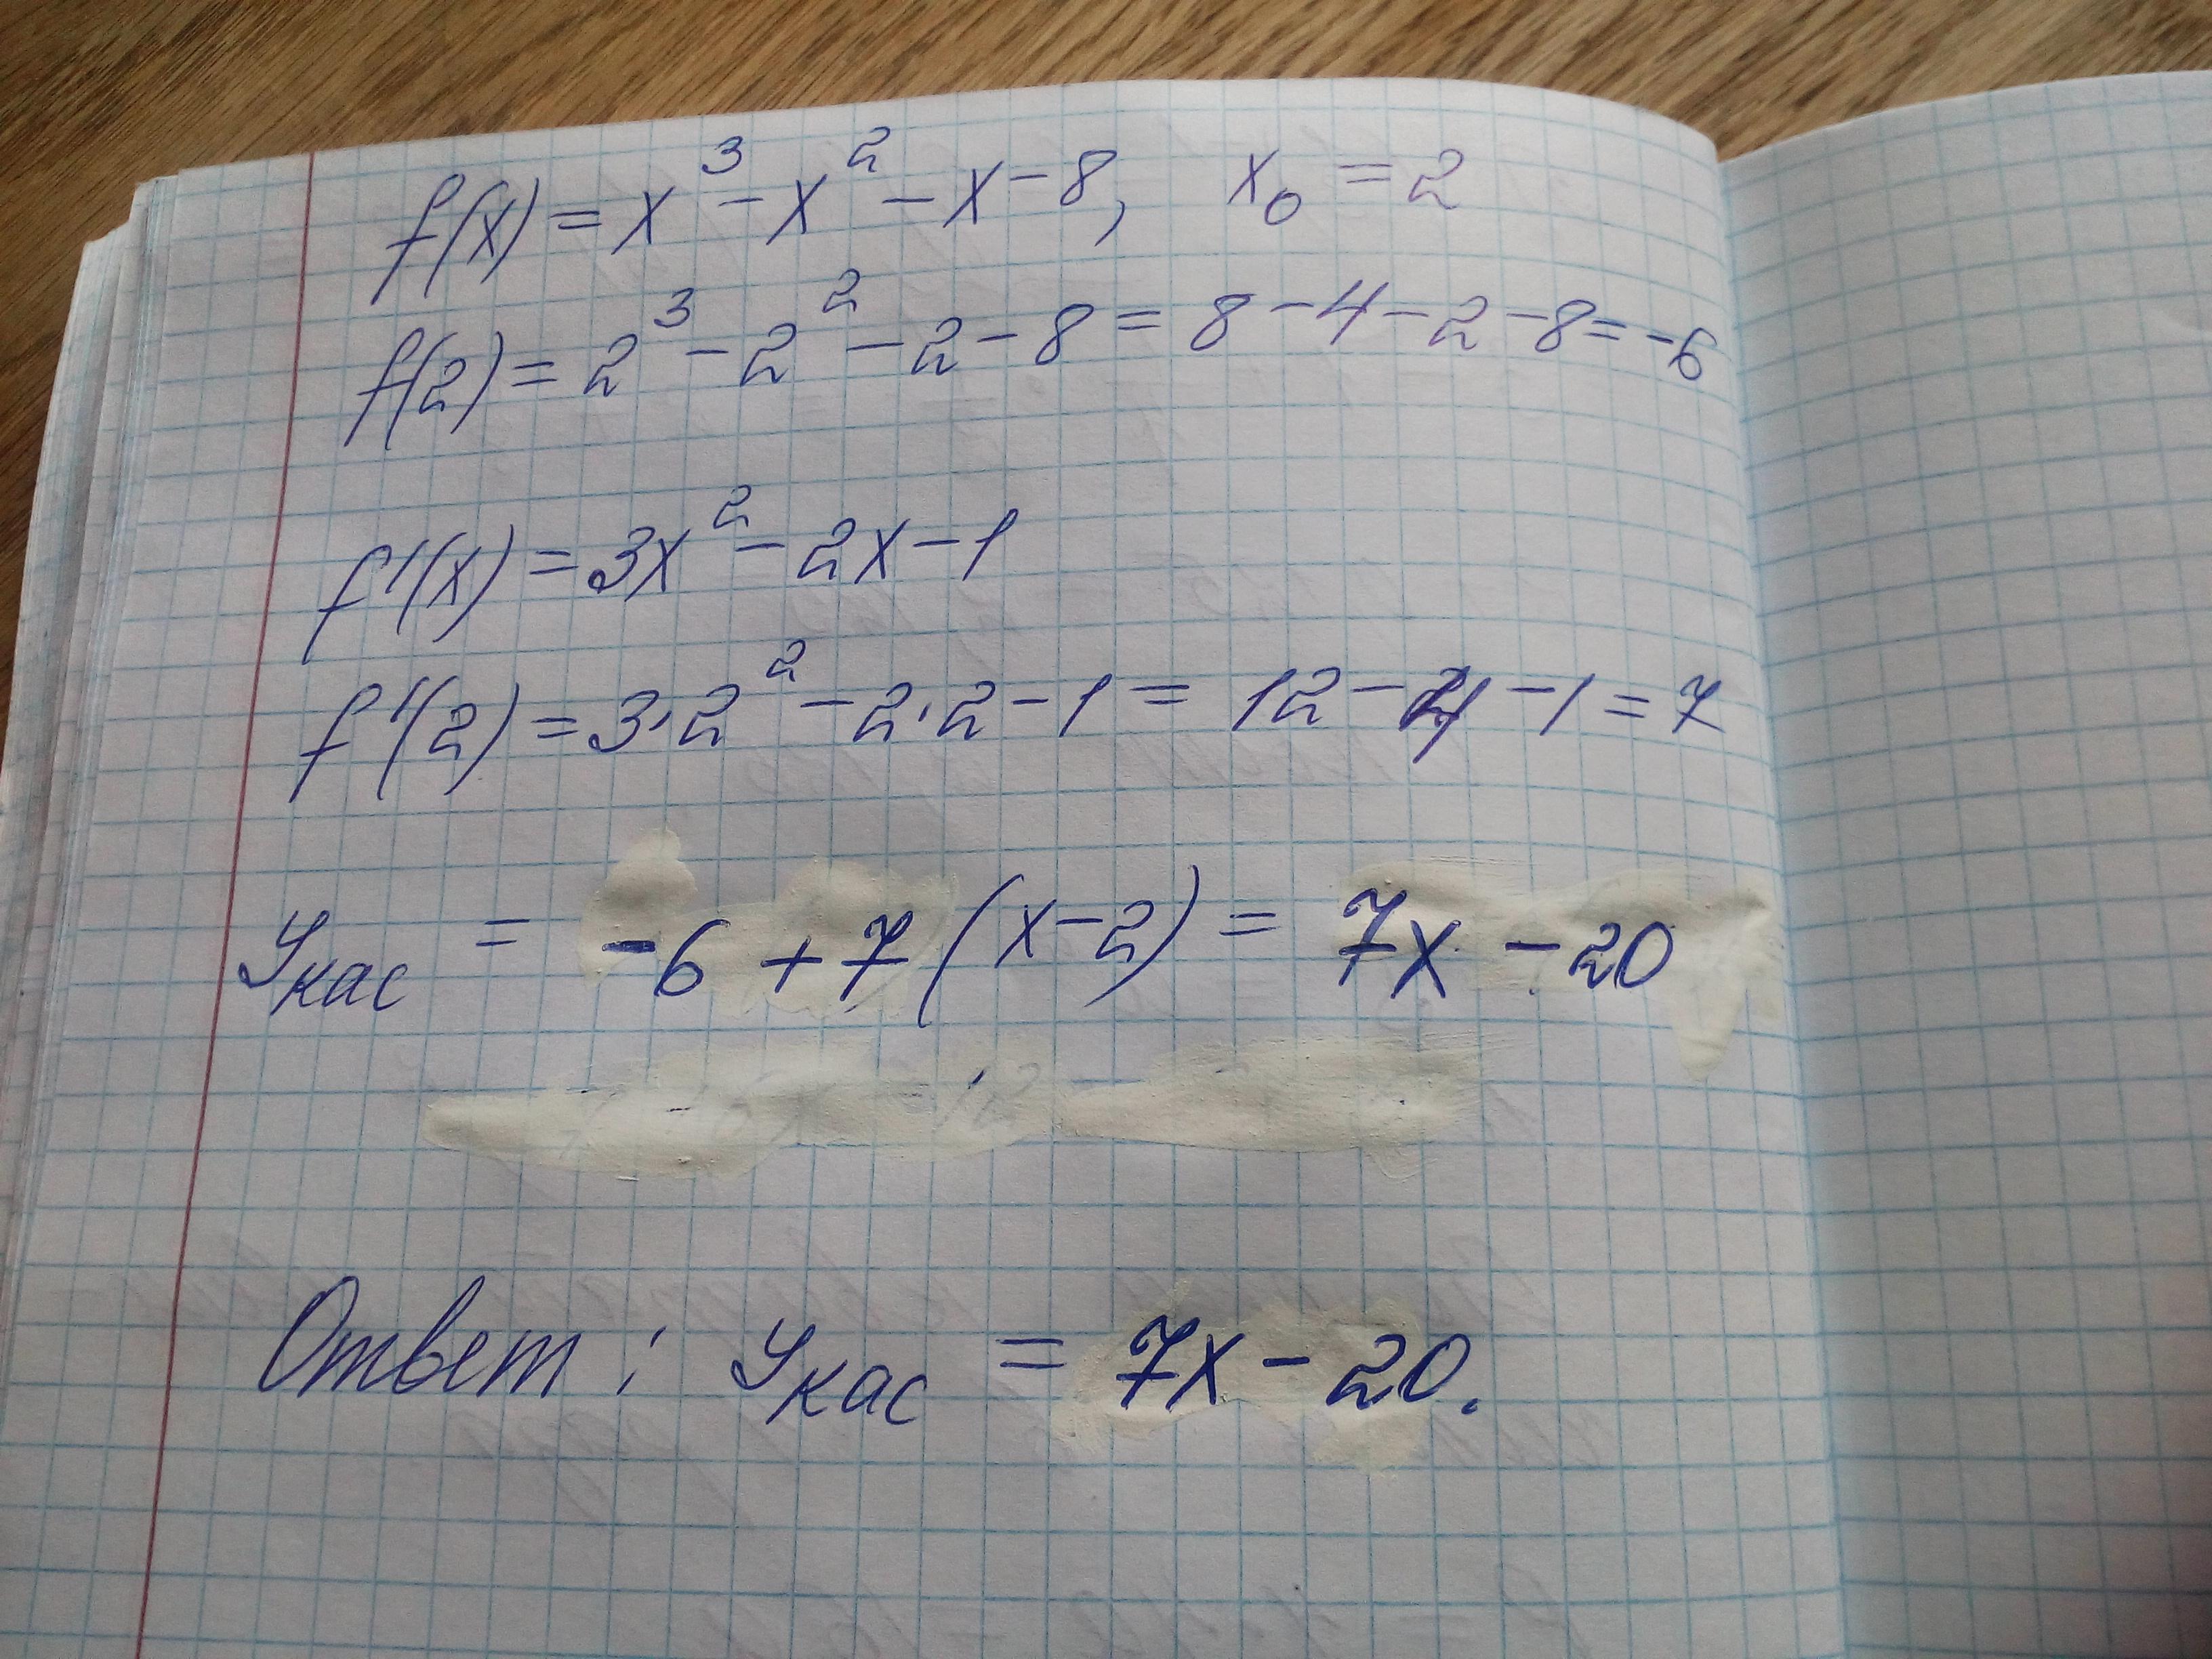 f(x) = x³ - x² - x - 8, x₀ = 2
f(2) = 2³ - 2² - 2 - 8 = 8 - 4 - 2 - 8 = -6
f'(x) = 3x² - 2x - 1
f'(2) = 3·2² - 2·2 - 1 = 12 - 4 - 1 = 7
yкас = -6 + 7(x - 2) = 7x - 20
Ответ: yкас = 7x - 20.